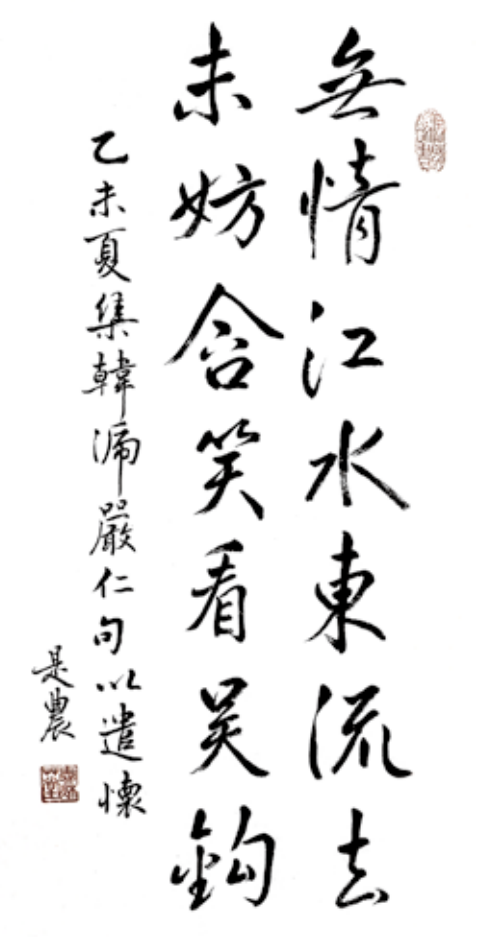 無情江水東流去
未妨含笑看吴鈎
乙未夏集韓淲嚴仁句以遣懷
是農